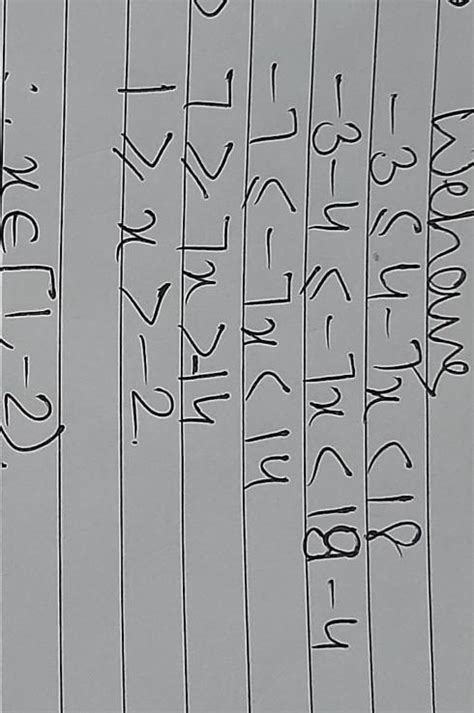 We have
-3 ≤ 4-7x < 18
-3-4 ≤ -7x < 18-4
-7 ≤ -7x < 14
7 ≥ 7x > -14
1 ≥ x > -2.
∴ x ∈ [1, -2).